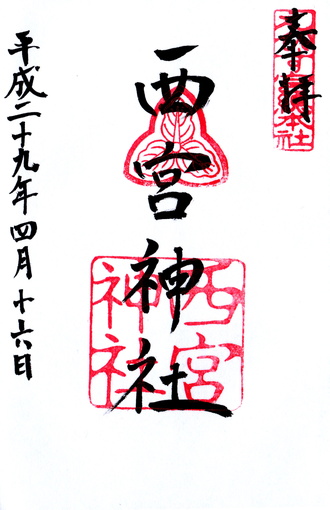 奉拝
西宮神社
西宮
神社
平成二十九年四月十六日